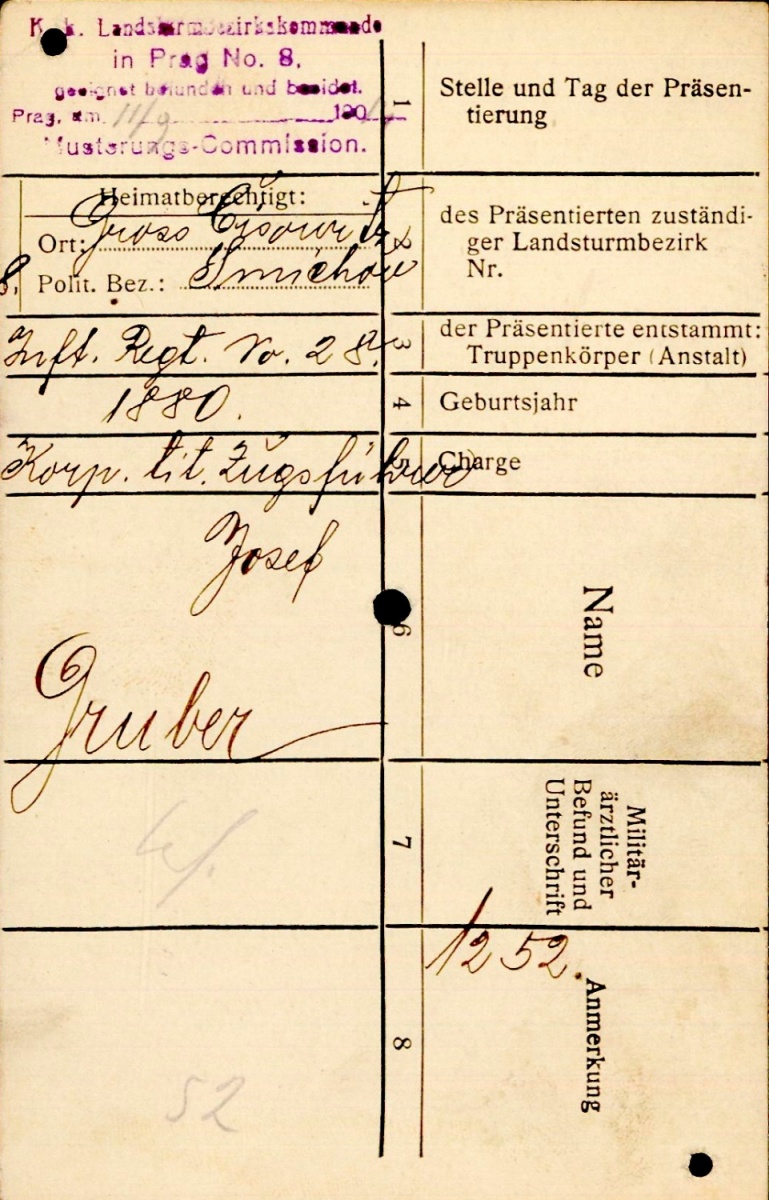 K. k. Landsturmbezirkskommando
in Prag No. 8.
geeignet befunden und beeidet.
Prag, am 11/9 190
Musterungs-Commission.
1
Stelle und Tag der Präsen-
tierung
Heimatberechtigt:
Ort: Gross Čisowitz
8. Polit. Bez.: Smichow
2
des Präsentierten zuständi-
ger Landsturmbezirk
Nr.
Inft. Regt. No. 28.
3
der Präsentierte entstammt:
Truppenkörper (Anstalt)
1880.
4
Geburtsjahr
Korp. tit. Zugsführer
5
Charge
Josef
Gruber
6
Name
7
Militär-
ärztlicher
Befund und
Unterschrift
1252.
8
Anmerkung
52